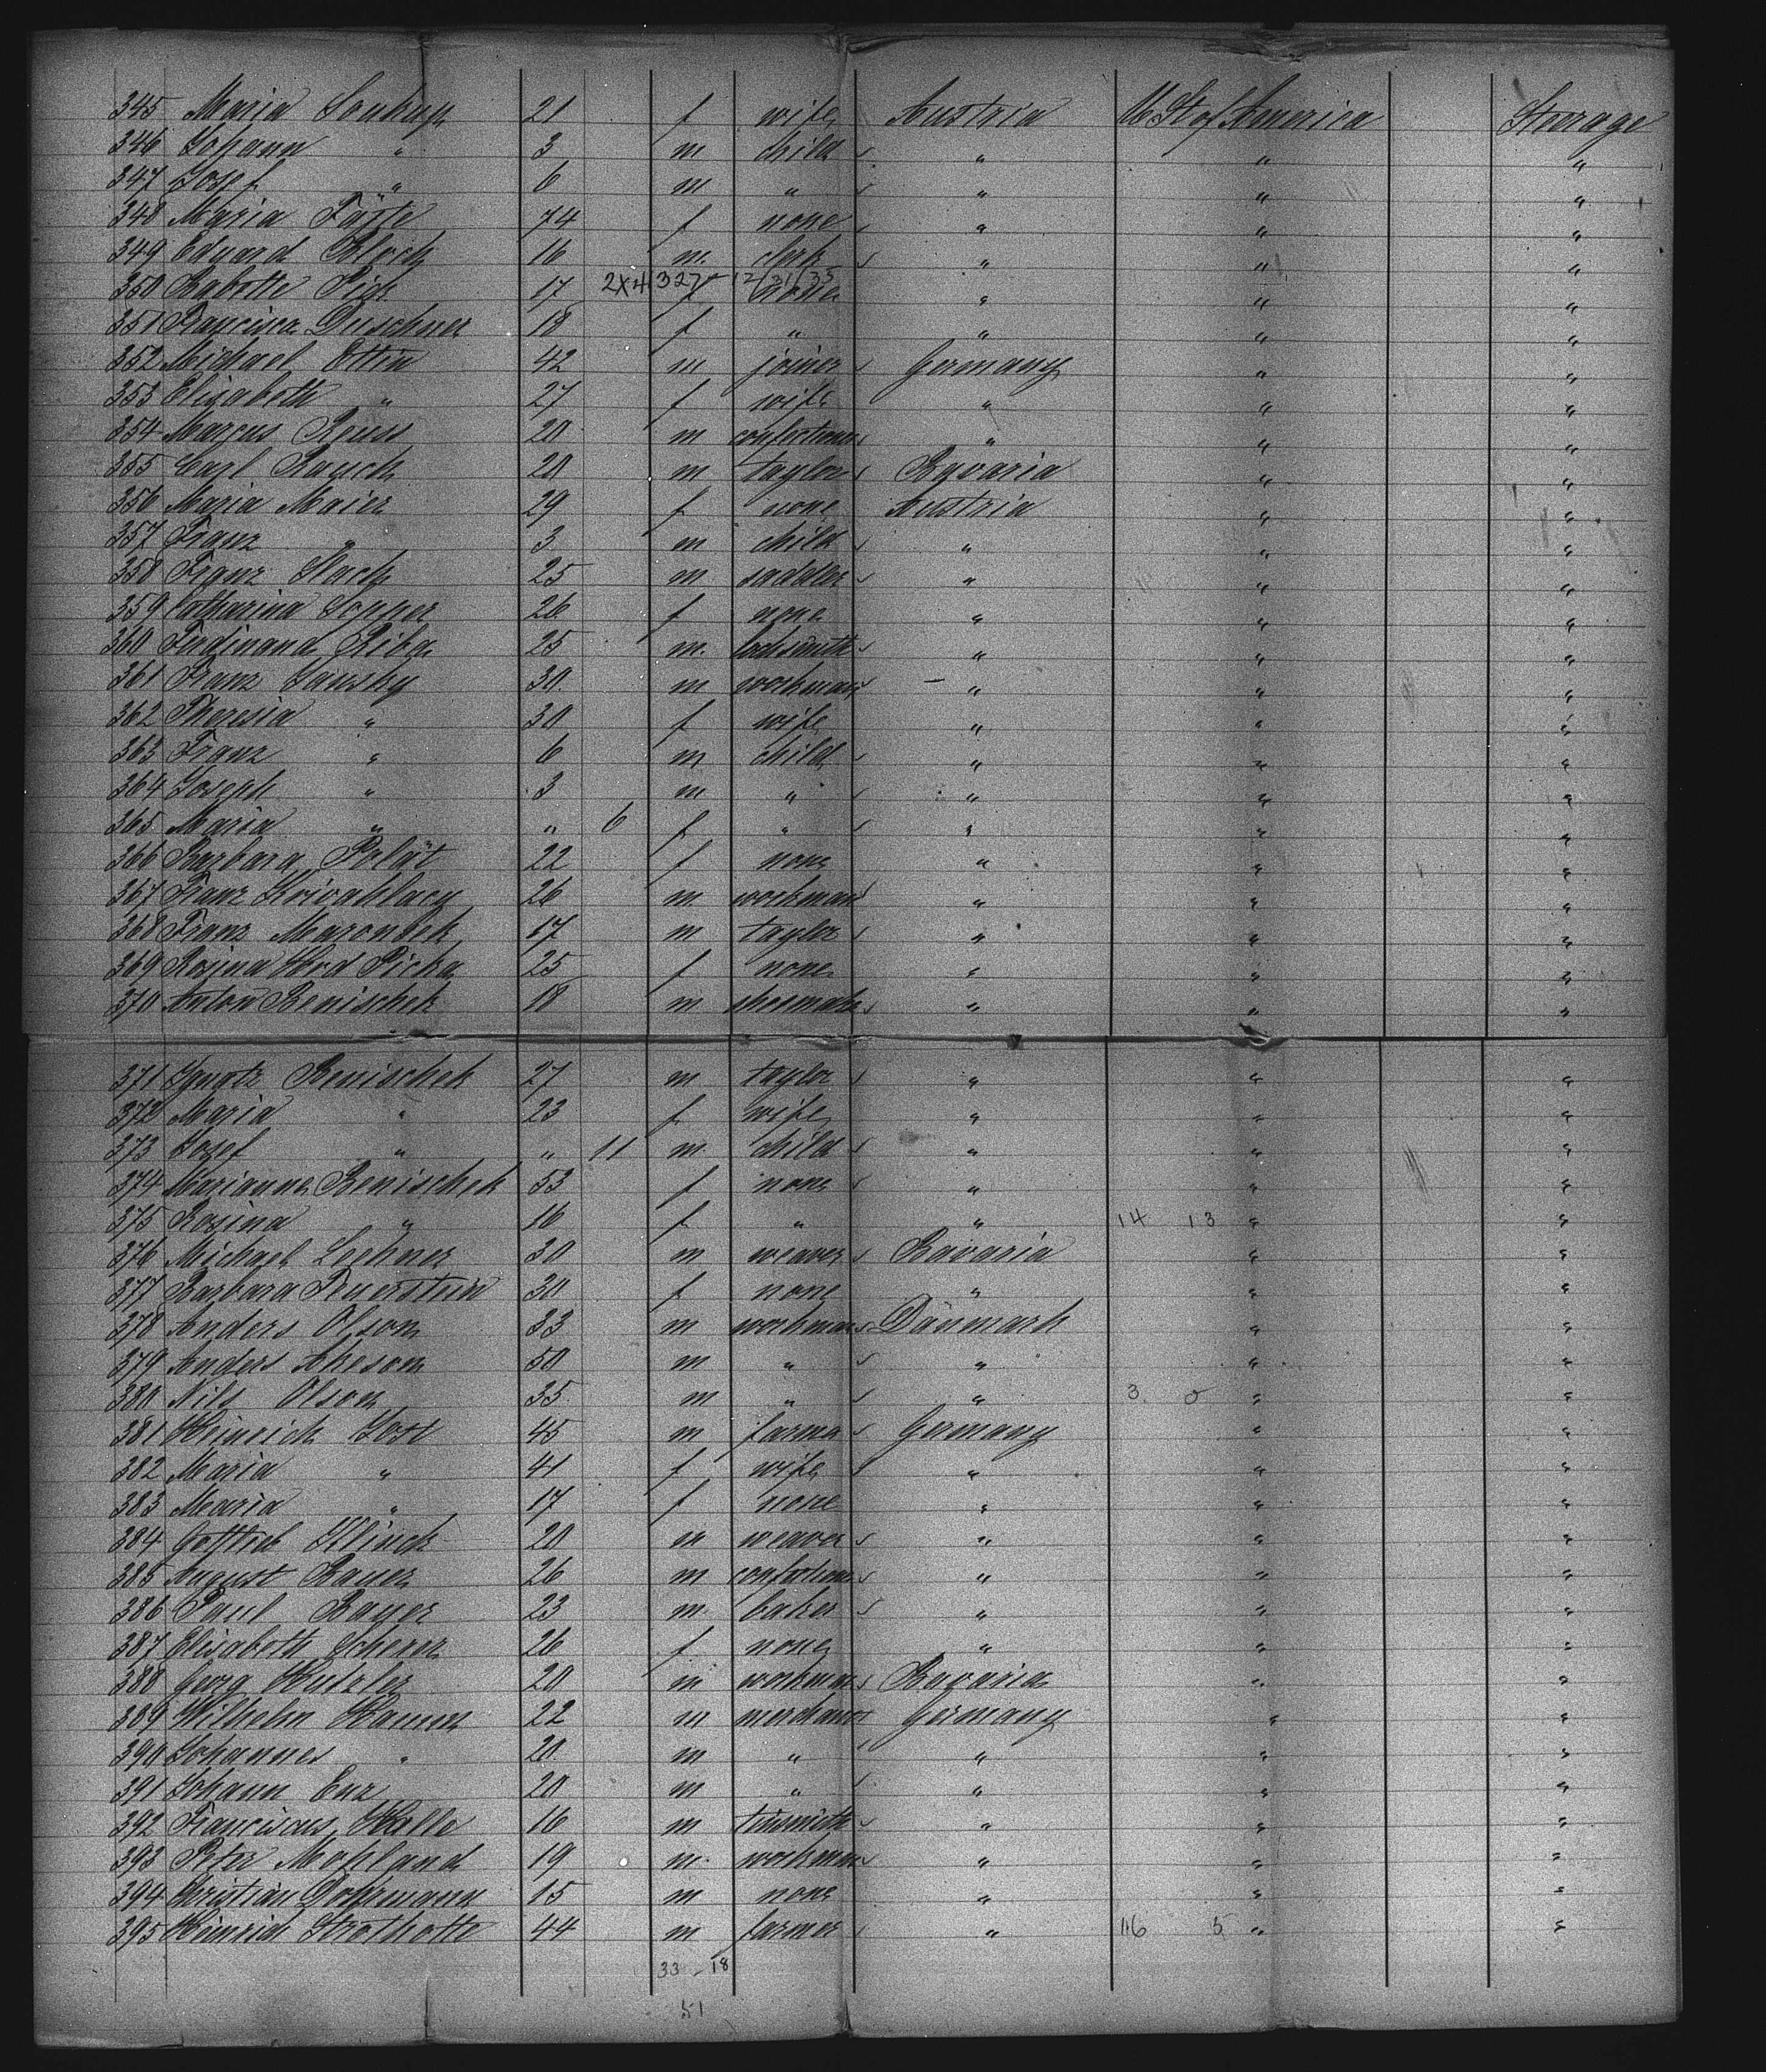 345 Maria Soukup 21 f wife Austria U St of America Steerage
346 Johann " 3 m child " " "
347 Josef " 6 m " " " "
348 Maria 74 f none " " "
349 Eduard Bloch 16 m clerk " " "
350 Babette Pick 17 2X4 1327 12/31/35 f none " " "
351 Francisca Duschner 18 f " " " "
352 Michael Ettin 42 m joiner Germany " "
353 Elisabeth " 27 f wife " " "
354 Marcus Reuss 20 m confectioner " " "
355 Carl Rauch 20 m taylor Bavaria " "
356 Maria Maier 29 f none Austria " "
357 Franz " 3 m child " " "
358 Franz Stach 25 m saddler " " "
359 Catharina Sopper 26 f none " " "
360 Ferdinand Riba 25 m. locksmith " " "
361 Franz Jansky 30 m workman " " "
362 Theresia " 30 f wife " " "
363 Franz " 6 m child " " "
364 Joseph " 3 m " " " "
365 Maria " " 6 f " " " "
366 Barbara Polät 22 f none " " "
367 Franz Krivohlacy 26 m workman " " "
368 Franz Maroušek 17 m taylor " " "
369 Rosina 25 f none " " "
370 Anton Benischek 18 m shoemaker " " "
371 Ignatz Benischek 27 m taylor " " "
372 Maria " 23 f wife " " "
373 Josef " " 11 m child " " "
374 Marianna Benischek 53 f none " " "
375 Rosina " 16 f " " 14 13 " "
376 Michael Lechner 30 m weaver Bavaria " "
377 Barbara Feuerstein 30 f none " " "
378 Anders Olson 33 m workman Dänmark " "
379 Anders Akeson 50 m " " " "
380 Nils Olson 35 m " " 3 0 " "
381 Heinrich Jost 45 m farmer Germany " "
382 Maria " 41 f wife " " "
383 Maria " 17 f none " " "
384 Gottlieb Klinck 20 m weaver " " "
385 August Bauer 26 m confectioner " " "
386 Paul Bayer 23 m. baker " " "
387 Elisabeth Scherer 26 f none " " "
388 Georg Hutzler 20 m workman Bavaria " "
389 Wilhelm Hamm 22 m merchant Germany " "
390 Johannes " 20 m " " " "
391 Johann Enz 20 m " " " "
392 Franciscus Halle 16 m tinsmith " " "
393 Peter Mohland 19 m. workman " " "
394 Christian Dohrmann 15 m none " " "
395 Heinrich Strothotte 44 m farmer " 116 5 " "
33 - 18
51